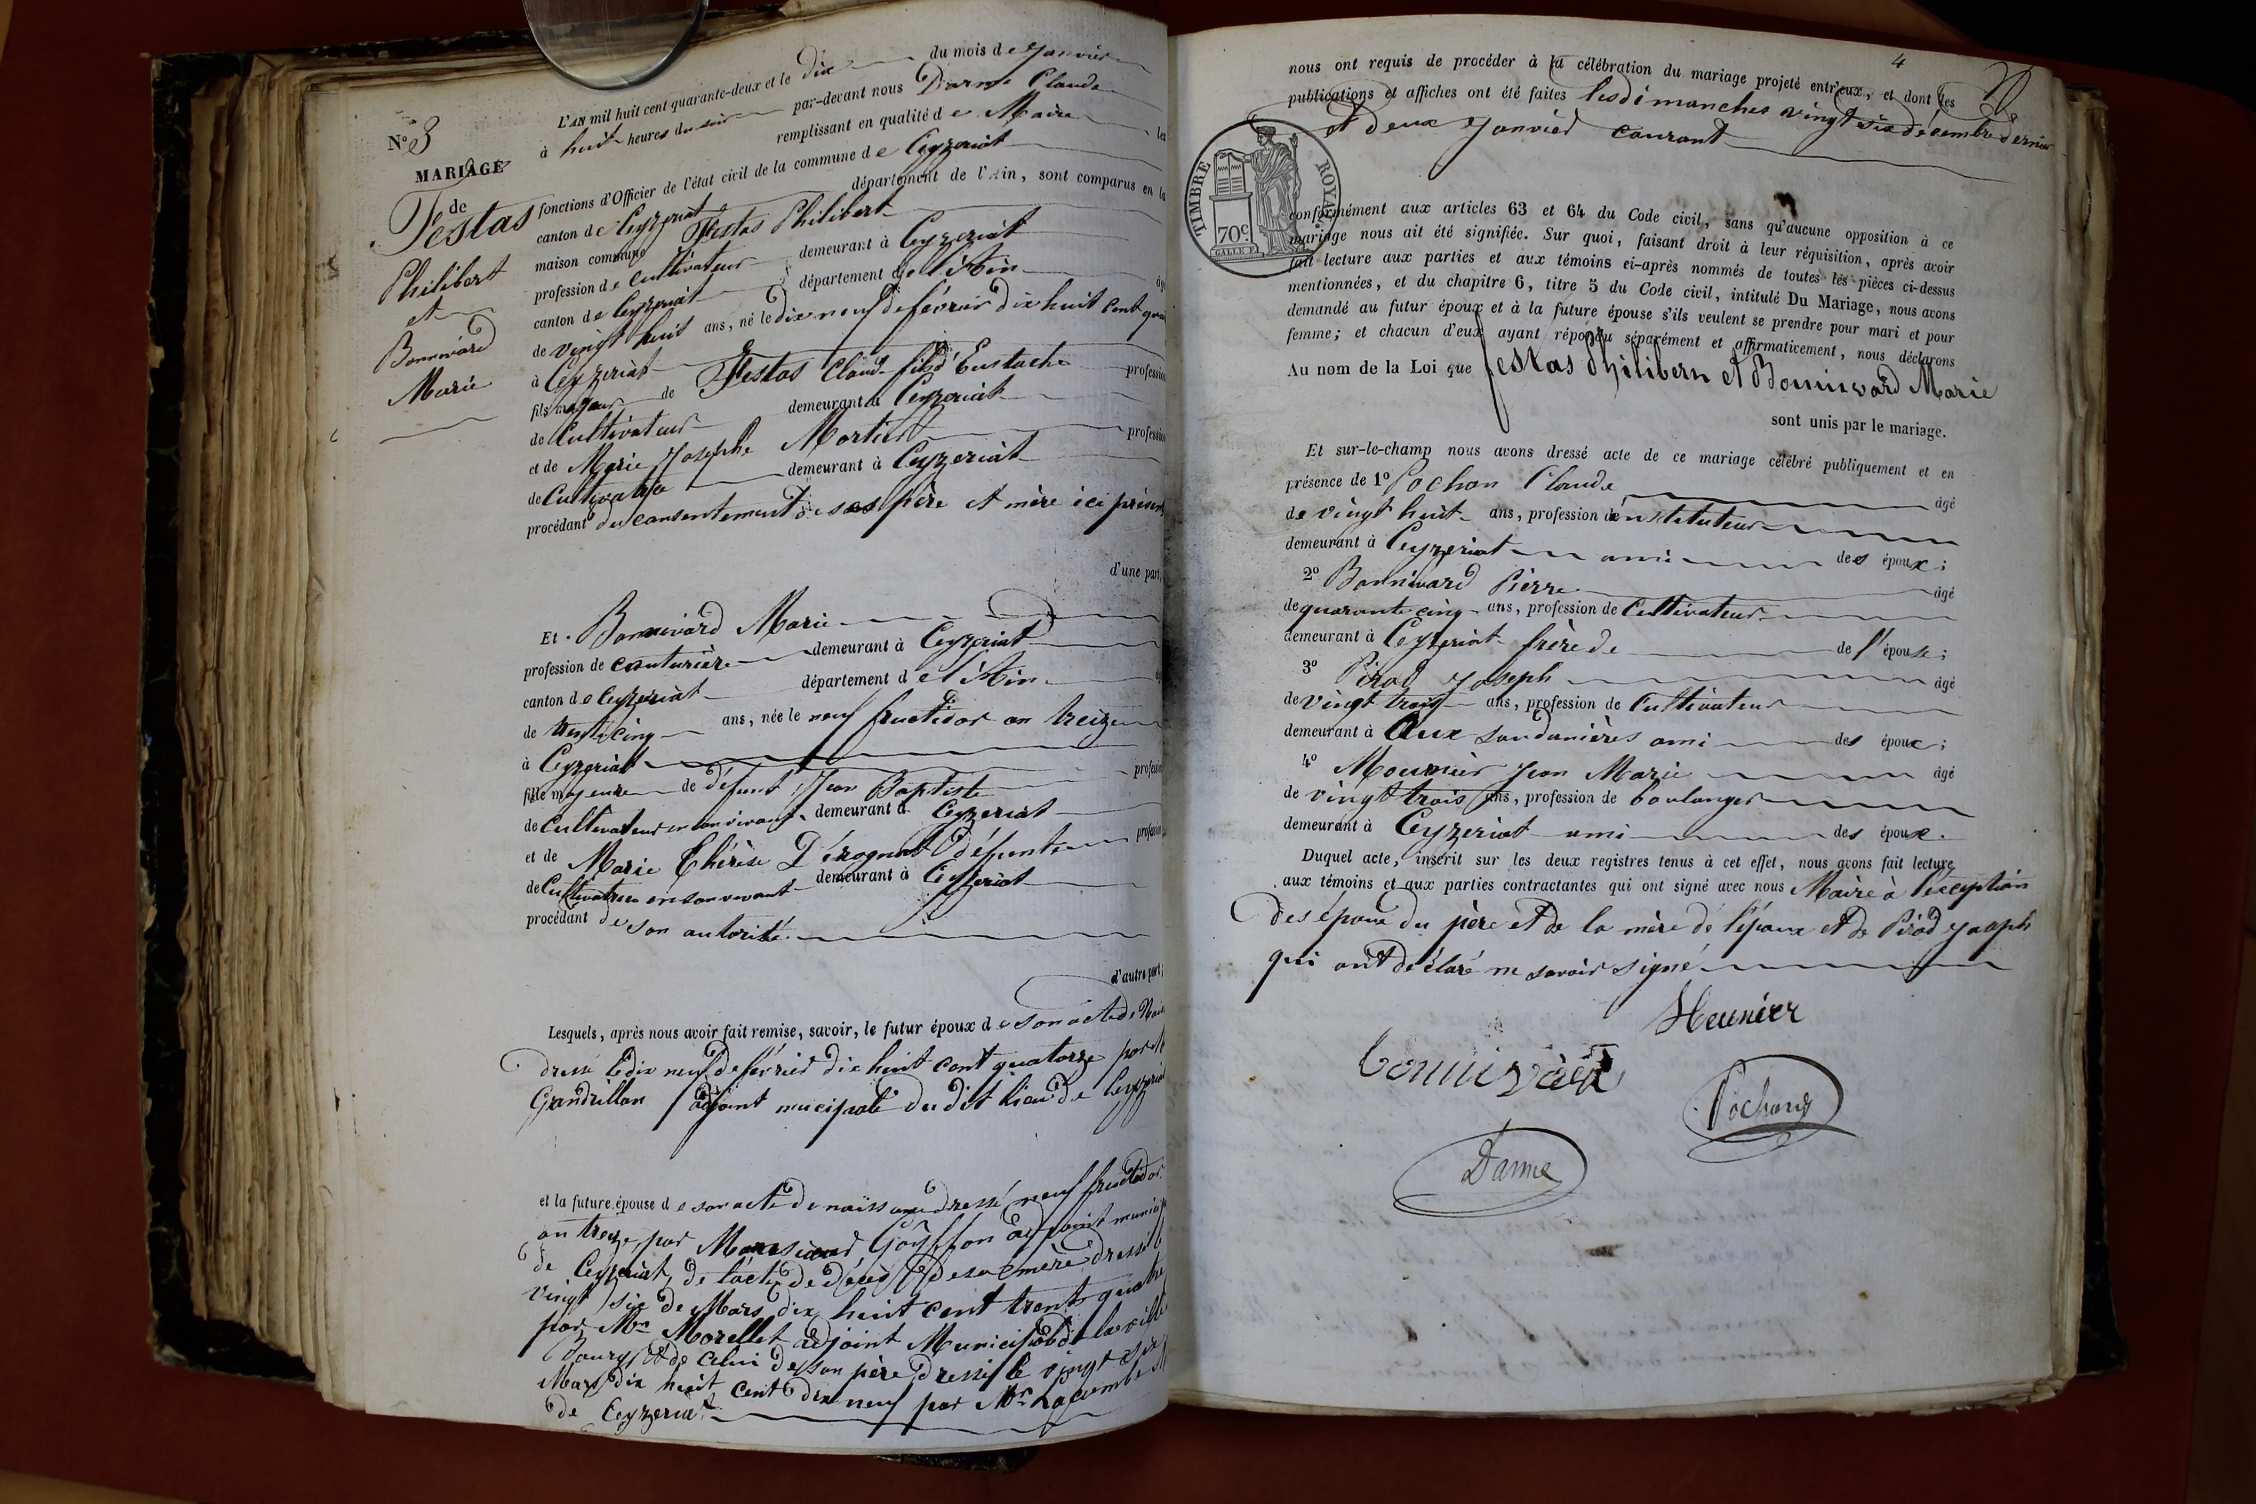 N° 3
MARIAGE
de
Festas
Philibert
et
Bonnivard
Marie
L'AN mil huit cent quarante-deux et le dix du mois de Janvier
à huit heures du soir par-devant nous Darme Claude
remplissant en qualité de Maire les
fonctions d'Officier de l'état civil de la commune de Ceyzeriat
canton de Ceyzeriat département de l'Ain, sont comparus en la
maison commune Festas Philibert
profession de cultivateur demeurant à Ceyzeriat
canton de Ceyzeriat département de l'Ain âgé
de vingt huit ans, né le dix neuf de février dix huit cent
à Ceyzeriat
fils majeur de Festas Claude fils d'Eustache profession
de Cultivateur demeurant à Ceyzeriat
et de Marie Josephe Mortier profession
de Cultivatrice demeurant à Ceyzeriat
procédant du consentement de ses père et mère ici présents
d'une part,
Et Bonnivard Marie
profession de couturière demeurant à Ceyzeriat
canton de Ceyzeriat département de l'Ain
de trente cinq ans, née le neuf fructidor an treize
à Ceyzeriat
fille majeure de défunt Jean Baptiste profession
de Cultivateur en son vivant demeurant à Ceyzeriat
et de Marie Thérèse Dérognat défunte profession
de Cultivatrice en son vivant demeurant à Ceyzeriat
procédant de son autorité
d'autre part;
Lesquels, après nous avoir fait remise, savoir, le futur époux de son acte de
dressé le dix neuf de février dix huit cent quatorze par
Gandrillon adjoint mucipale du dit lieu de Ceyzeriat
et la future épouse de son acte de naissance dressé neuf fructidor
an treize par Monsieur Goyffon adjoint
de Ceyzeriat, de l'acte de décès de sa mère dressé le
vingt six de Mars dix huit cent trente quatre
par Mr Morellet adjoint Municipal de la ville
Bourg et de celui de son père dressé le vingt six
Mars dix huit cent dix neuf par Mr Lacombe
de Ceyzeriat
4
nous ont requis de procéder à la célébration du mariage projeté entr'eux, et dont les
publications et affiches ont été faites les dimanches vingt six décembre dernier
et deux Janvier courant
TIMBRE ROYAL
70c
conformément aux articles 63 et 64 du Code civil, sans qu'aucune opposition à ce
mariage nous ait été signifiée. Sur quoi, faisant droit à leur réquisition, après avoir
fait lecture aux parties et aux témoins ci-après nommés de toutes les pièces ci-dessus
mentionnées, et du chapitre 6, titre 5 du Code civil, intitulé Du Mariage, nous avons
demandé au futur époux et à la future épouse s'ils veulent se prendre pour mari et pour
femme; et chacun d'eux ayant répondu séparément et affirmativement, nous déclarons
Au nom de la Loi que Festas Philibert et Bonnivard Marie
sont unis par le mariage.
Et sur-le-champ nous avons dressé acte de ce mariage célébré publiquement et en
présence de 1° Pochon Claude âgé
de vingt huit ans, profession d'instituteur
demeurant à Ceyzeriat ami des époux;
2° Bonnivard Pierre âgé
de quarante cinq ans, profession de Cultivateur
demeurant à Ceyzeriat frère de de l'épouse;
3° Pirod Joseph âgé
de vingt trois ans, profession de Cultivateur
demeurant à Aux Soudanières ami des époux;
4° Mounier Jean Marie âgé
de vingt trois ans, profession de boulanger
demeurant à Ceyzeriat ami des époux.
Duquel acte, inscrit sur les deux registres tenus à cet effet, nous avons fait lecture
aux témoins et aux parties contractantes qui ont signé avec nous Maire à l'exception
des époux du père et de la mère de l'époux et de Pirod Joseph
qui ont déclaré ne savoir signé
Meunier
bonnivard
Pochon
Darme